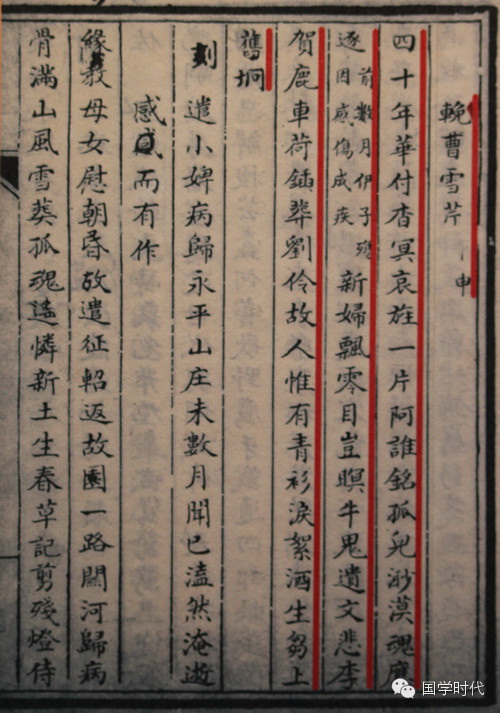 輓曹雪芹 申
四十年華付杳冥哀旌一片阿誰銘孤兒渺漠魂應
逐
前數月伊子殤
因感傷成疾
新婦飄零目豈瞑牛鬼遺文悲李
賀鹿車荷鍤葬劉伶故人惟有青衫淚絮酒生芻上
舊坰
刻 遣小婢病歸永平山庄未數月聞已溘然淹逝
感而有作
緣教母女慰朝昏故遣征軺返故園一路關河歸病
骨滿山風雪葬孤魂遙憐新土生春草記剪殘燈侍
国学时代